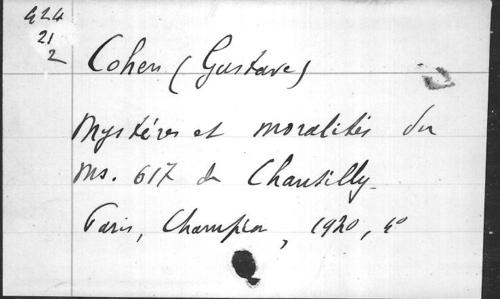 424
21
2
Cohen (Gustave)
Mystères et moralités du
Ms. 617 de Chantilly.
Paris, Champion, 1920, 4°